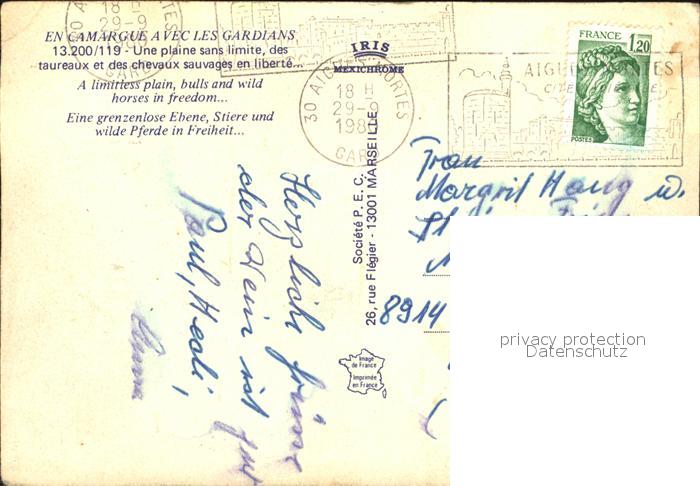 EN CAMARGUE AVEC LES GARDIANS
13.200/119 - Une plaine sans limite, des
taureaux et des chevaux sauvages en liberté...
A limitless plain, bulls and wild
horses in freedom...
Eine grenzenlose Ebene, Stiere und
wilde Pferde in Freiheit...
IRIS
MEXICHROME
30 AIGUES-MORTES
18 H
29-9
GARD
FRANCE
1,20
POSTES
Société P.E.C.
26, rue Flégier - 13001 MARSEILLE
Image
de France
Imprimée
en France
Herzliche Grüsse
der Wein ist gut
Paul, Hedi,
Frau
Margrit Haug u.
8914
privacy protection
Datenschutz